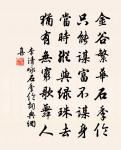 金谷繁華石季倫
只能謀富不謀身
當時縱與綠珠去
猶有無窮歌舞人
李清詠石季倫詞典網